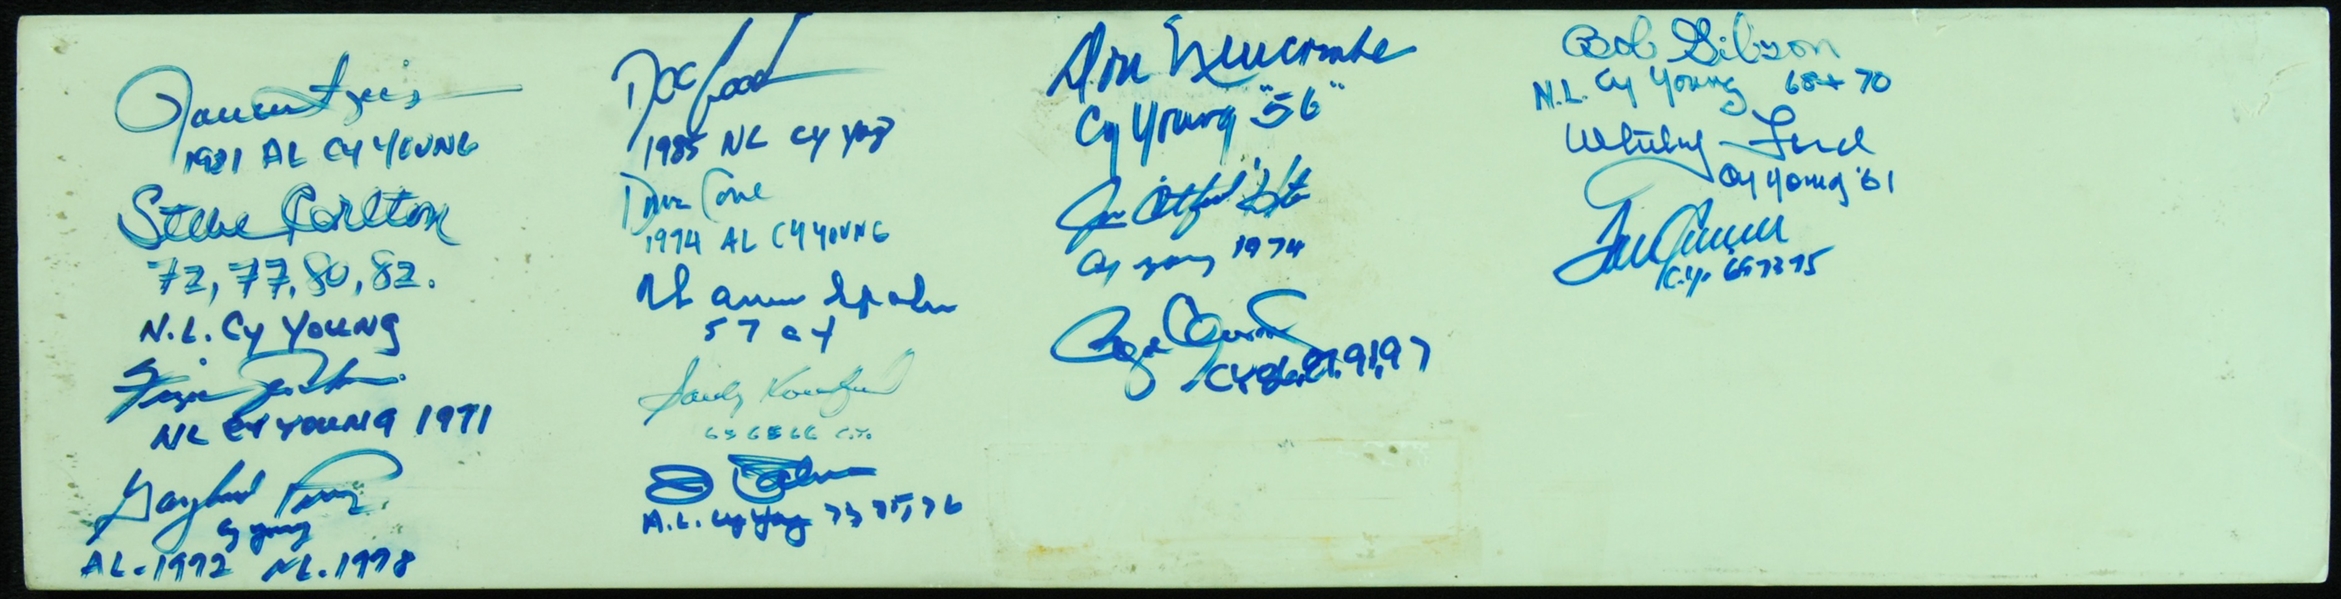 Rollie Fingers
1981 AL CY YOUNG
Steve Carlton
72, 77, 80, 82.
N.L. Cy Young
Fergie Jenkins
NL CY YOUNG 1971
Gaylord Perry
Cy young
AL-1972 NL.1978
Doc Good
1985 NL CY Yog
Dave Cone
1994 AL CY YOUNG
Warren Spahn
57 CY
Sandy Koufax
63 65 66 C.Y.
J Palmer
A.L. Cy Young 73, 75, 76
Don Newcombe
Cy Young "56"
Cy young 1974
Roger Clemens
CY 86, 87, 91, 97
Bob Gibson
N.L. Cy Young 68 + 70
Whitey Ford
Cy Young '61
Tom Seaver
C.Y. 69 73 75